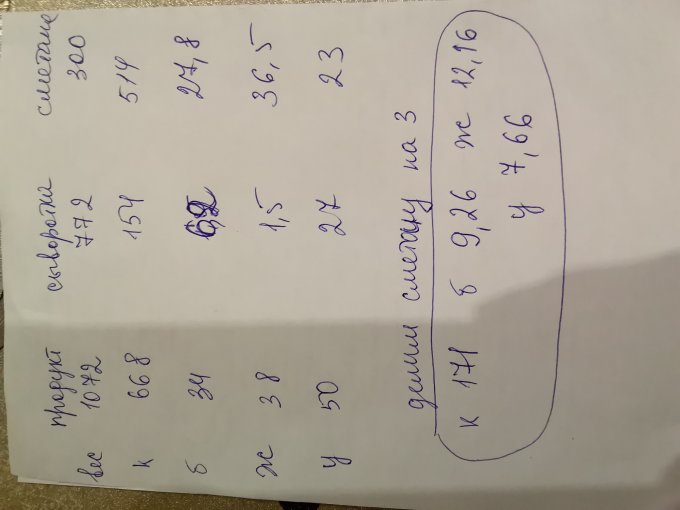 продукт сыворотка сметана
вес 1072 772 300
к 668 154 514
б 34 6,2 27,8
ж 38 1,5 36,5
у 50 27 23
делим сметану на 3
к 171 б 9,26 ж 12,16
у 7,66